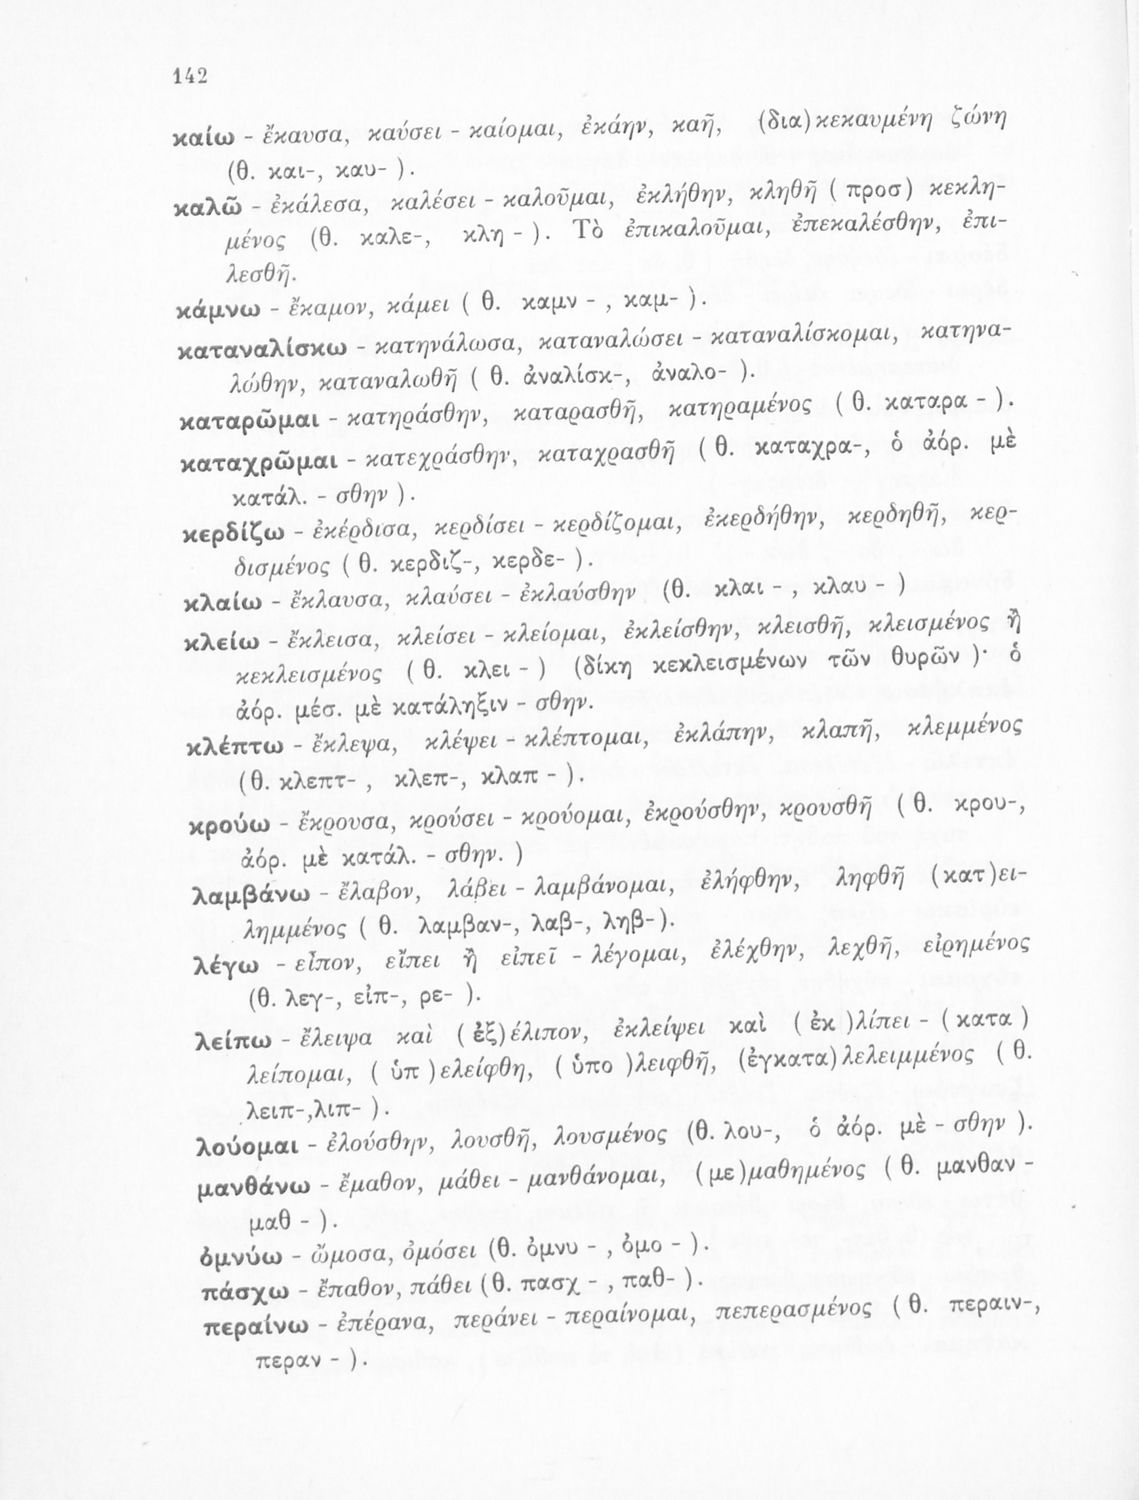 142
καίω - ἔκαυσα, καύσει - καίομαι, ἐκάην, καῇ, (δια)κεκαυμένη ζώνη
(θ. και-, καυ- ).
καλῶ - ἐκάλεσα, καλέσει - καλοῦμαι, ἐκλήθην, κληθῇ ( προσ) κεκλη-
μένος (θ. καλε-, κλη - ). Τὸ ἐπικαλοῦμαι, ἐπεκαλέσθην, ἐπι-
λεσθῇ.
κάμνω - ἔκαμον, κάμει ( θ. καμν - , καμ- ).
καταναλίσκω - κατηνάλωσα, καταναλώσει - καταναλίσκομαι, κατηνα-
λώθην, καταναλωθῇ ( θ. ἀναλίσκ-, ἀναλο- ).
καταρῶμαι - κατηράσθην, καταρασθῇ, κατηραμένος ( θ. καταρα - ).
καταχρῶμαι - κατεχράσθην, καταχρασθῇ ( θ. καταχρα-, ὁ ἀόρ. μὲ
κατάλ. - σθην ).
κερδίζω - ἐκέρδισα, κερδίσει - κερδίζομαι, ἐκερδήθην, κερδηθῇ, κερ-
δισμένος ( θ. κερδιζ-, κερδε- ).
κλαίω - ἔκλαυσα, κλαύσει - ἐκλαύσθην (θ. κλαι - , κλαυ - )
κλείω - ἔκλεισα, κλείσει - κλείομαι, ἐκλείσθην, κλεισθῇ, κλεισμένος ἢ
κεκλεισμένος ( θ. κλει - ) (δίκη κεκλεισμένων τῶν θυρῶν )· ὁ
ἀόρ. μέσ. μὲ κατάληξιν - σθην.
κλέπτω - ἔκλεψα, κλέψει - κλέπτομαι, ἐκλάπην, κλαπῇ, κλεμμένος
(θ. κλεπτ- , κλεπ-, κλαπ - ).
κρούω - ἔκρουσα, κρούσει - κρούομαι, ἐκρούσθην, κρουσθῇ ( θ. κρου-,
ἀόρ. μὲ κατάλ. - σθην. )
λαμβάνω - ἔλαβον, λάβει - λαμβάνομαι, ἐλήφθην, ληφθῇ (κατ)ει-
λημμένος ( θ. λαμβαν-, λαβ-, ληβ-).
λέγω - εἶπον, εἴπει ἢ εἰπεῖ - λέγομαι, ἐλέχθην, λεχθῇ, εἰρημένος
(θ. λεγ-, εἰπ-, ρε- ).
λείπω - ἔλειψα καὶ ( ἐξ)έλιπον, ἐκλείψει καὶ ( ἐκ )λίπει - ( κατα )
λείπομαι, ( ὑπ )ελείφθη, ( ὑπο )λειφθῇ, (ἐγκατα)λελειμμένος ( θ.
λειπ-,λιπ- ).
λούομαι - ἐλούσθην, λουσθῇ, λουσμένος (θ. λου-, ὁ ἀόρ. μὲ - σθην ).
μανθάνω - ἔμαθον, μάθει - μανθάνομαι, (με)μαθημένος ( θ. μανθαν -
μαθ - ).
ὀμνύω - ὤμοσα, ὀμόσει (θ. ὀμνυ - , ὀμο - ).
πάσχω - ἔπαθον, πάθει (θ. πασχ - , παθ- ).
περαίνω - ἐπέρανα, περάνει - περαίνομαι, πεπερασμένος ( θ. περαιν-,
περαν - ).